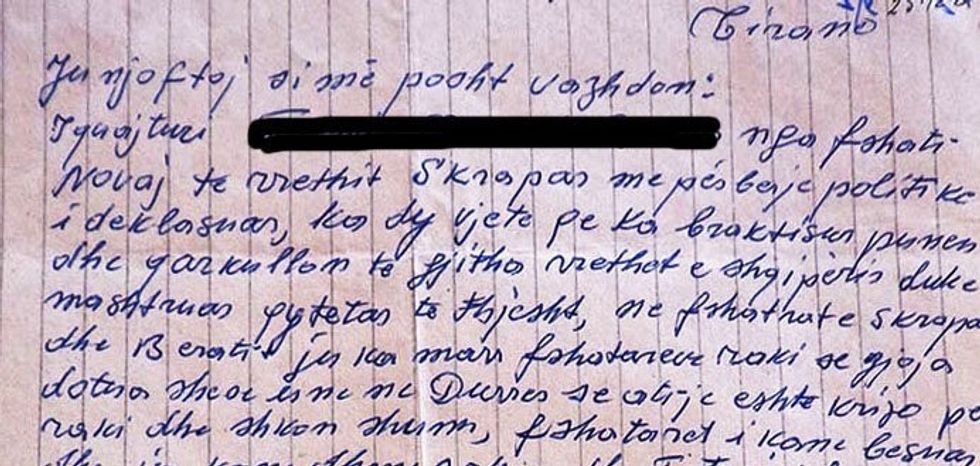 Tirane
Ju njoftoj si më posht vazhdon:
I quajturi nga fshati-
Novaj te rrethit Skrapar me përbërje politike
i deklasuar, ka dy vjete qe ka braktisur punen
dhe qarkullon te gjitha rrethet e shqiperis duke
mashtruar qytetar te thjesht, ne fshatrate Skrapa
dhe Beratit ju ka marr fshatareve raki se gjoja
do ta ne Durres se atije eshte krizo p
raki dhe shkon shum, fshataret i kane besuar